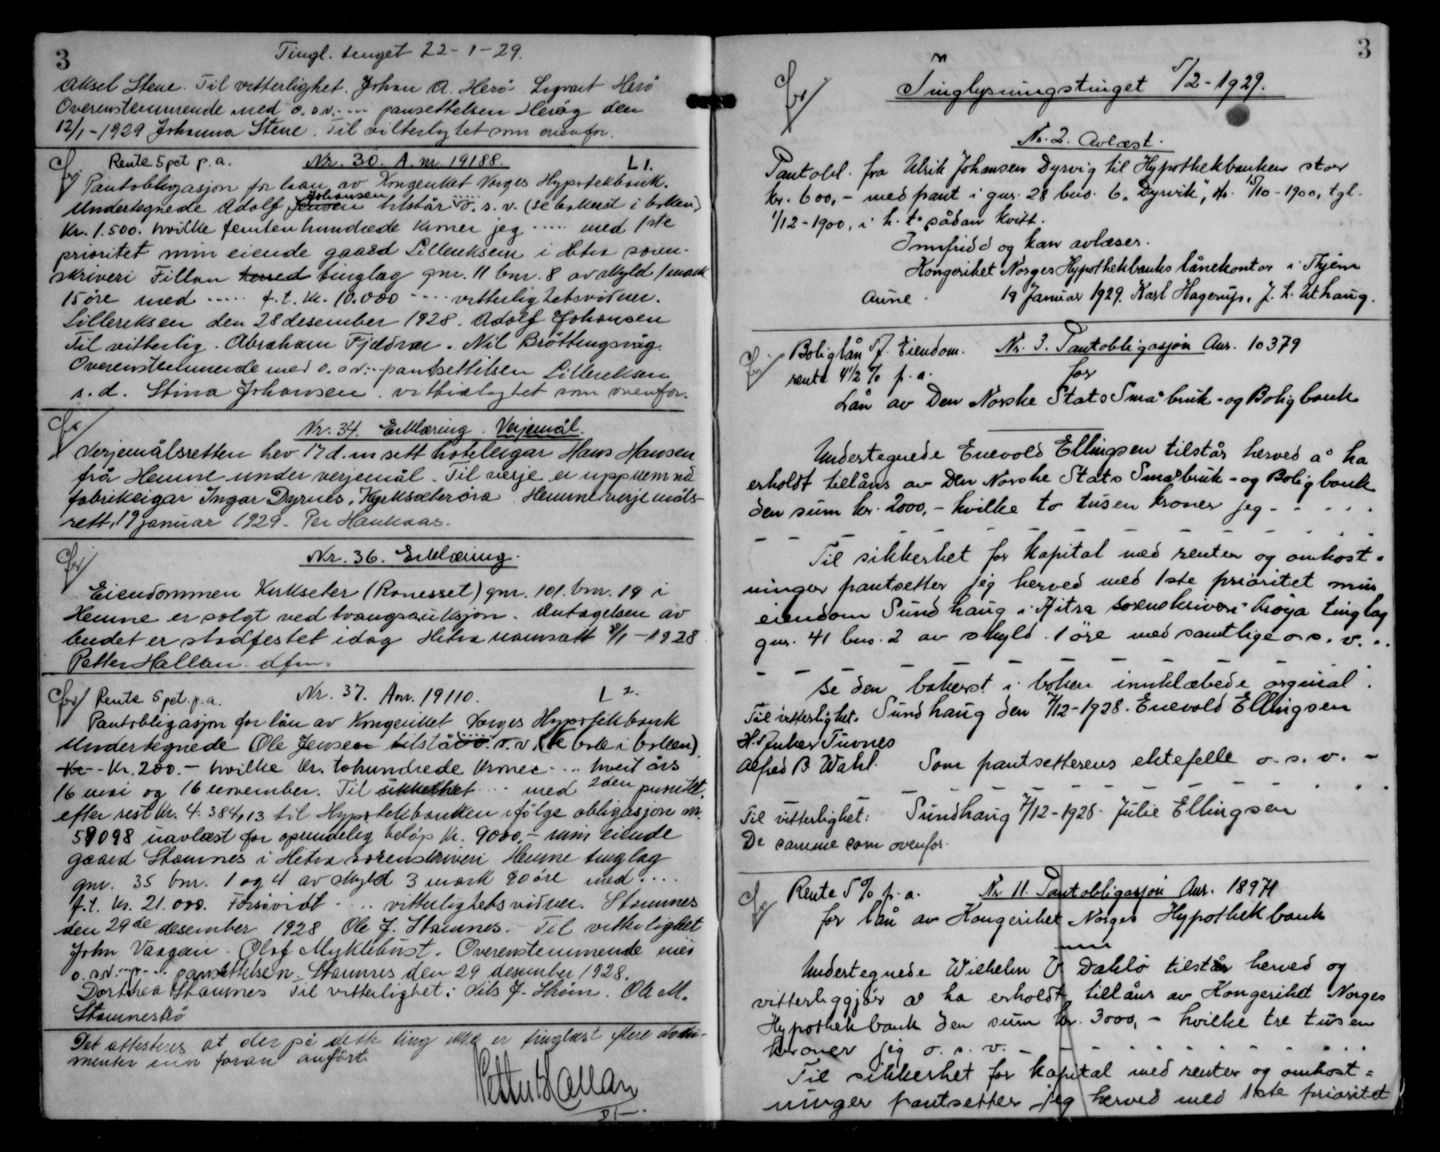 3
Tingl. tinget 22-1-29.
Aksel Stene. Til vitterlighet. Johan A. Herö. Sigvart Herö
Overenstemmende med o.s.v. .... pansettelsen Heröy den
12/1-1929 Johanna Stene. Til vitterlighet som ovenfor.
Rente 5 pct p.a. Nr. 30. A.nr. 19188. L 1.
Pantobligasjon for laan av Kongeriket Norges Hypotekbank.
Undertegnede Adolf Johansen tilstår o.s.v. (se bakerst i boken)
Kr. 1.500. hvilke femten hundrede kroner jeg ..... med 1ste
prioritet min eiende gaard Lilleeriksen i Hitra soren-
skriveri Fillan tinglag gnr. 11 bnr. 8 av skyld 1 mark
15 öre med ..... f.t. kr. 10.000 .... vitterlighetsvidner.
Lilleriksen den 28 desember 1928. Adolf Johansen
Til vitterlig. Abraham Fjeldvær. Nil Bröttingsvåg
Overenstemmende med o.s.v. pansettilsen Lilleriksen
s.d. Stina Johansen. vitterlighet som ovenfor.
Nr. 34. Erklæring. Verjemål.
Verjemålsretten hev 17 d.m sett hoteleigar Hans Hansen
frå Hemne under verjemål. Til verje er uppnemnd
fabrikeigar Ingar Dyrnes, Kyrksæteröra. Hemne verjemåls-
rett, 19 januar 1929. Per Hauknas.
Nr. 36. Erklæring.
Eiendommen Kirkseter (Ronesset) gnr. 101. bnr. 19 i
Hemne er solgt ved tvangsauksjon. Antagelsen av
budet er stadfestet idag Hitra namsrett 8/1-1928
Petter Hallan. dfm.
Rente 5 pct p.a. Nr. 37. Anr. 19110. L 2.
Pantobligasjon for lån av Kongeriket Norges Hypotekbank
Undertegnede Ole Jensen tilstår o.s.v. (se bak i boken)
Kr. 200.- hvilke Kr. tohundrede kroner ... hvert års
16 mai og 16 november. Til sikkerhet ... med 2den prioritet.
efter rest kr. 4.384,13 til Hypotekbanken ifölge obligasjon nr.
59098 uavlæst for oprindelig belöp Kr. 9000,- min eiende
gaard Stamnes i Hitra sorenskriveri Hemne tinglag
gnr. 35 bnr. 1 og 4 av skyld 3 mark 90 öre med. ...
f.t. kr. 21.000. Forsåvidt .... vitterlighetsvidner. Stamnes
den 29de desember 1928 Ole J. Stamnes. - Til vitterlighet
John Vaagan. Olaf Myklebust. Overenstemmende med
o.s.v. ... pansettelsen. Stamnes den 29 desember 1928.
Dorthea Stamnes Til vitterlighet: Nils J. Ström. Ole M.
Stamneströ
Det attesteres at der på dette ting ikke er tinglæst flere doku-
menter enn foran anfört
Petter Hallan
3
Tinglysningstinget 5/2-1929.
Nr. 2. Avlæst.
Pantobl. fra Ulrik Johansen Dyrvig til Hypothekbanken stor
kr. 600,- med pant i gnr. 28 bno. 6. "Dyrvik", dt. 15/10-1900, tgl.
1/12-1900, i h.t. sådan kvitt.
Innfridd og kan avlæses.
Kongeriket Norges Hypothekbanks lånekontor i Thjem
Aune. 19 Januar 1929. Karl Hagerup, J. L. Uthaug.
Boliglån S.f. Eiendom. Nr. 3. Pantobligasjon Anr. 10379
rente 4 1/2 % p.a. for
Lån av Den Norske Stats Småbruk- og Boligbank
Undertegnede Enevold Ellingsen tilstår herved å ha
erholdt tillåns av Den Norske Stats Småbruk- og Boligbank
den sum kr. 2000,- hvilke to tusen kroner jeg - - - - -
Til sikkerhet for kapital med renter og omkost-
ninger pantsetter jeg herved med 1ste prioritet min
eiendom Sundhaug i Hitra sorenskriveri Fröya tinglag
gnr. 41 bno. 2 av skyld. 1 öre med samtlige o.s.v. ..
- - Se den bakerst i boken innklæbede orginal.
Til vitterlighet. Sundhaug den 7/12-1928. Enevold Ellingsen
H. Anker Tuvnes
Alfred B Wahl. Som pantsetterens ektefelle o.s.v. -
Til vitterlighet: Sundhaug 7/12-1928. Julie Ellingsen
De samme som ovenfor.
Rente 5 % p.a. Nr 11. Pantobligasjon Anr. 18974
for lån av Kongeriket Norges Hypothekbank
Undertegnede Wilhelm O Dahlö tilstår herved og
vitterliggjör å ha erholdt tillåns av Kongeriket Norges
Hypothekbank den sum kr. 3000,- hvilke tre tusen
kroner jeg o.s.v. - - - - -
Til sikkerhet for kapital med renter og omkost-
ninger pantsetter jeg herved med 1ste prioritet